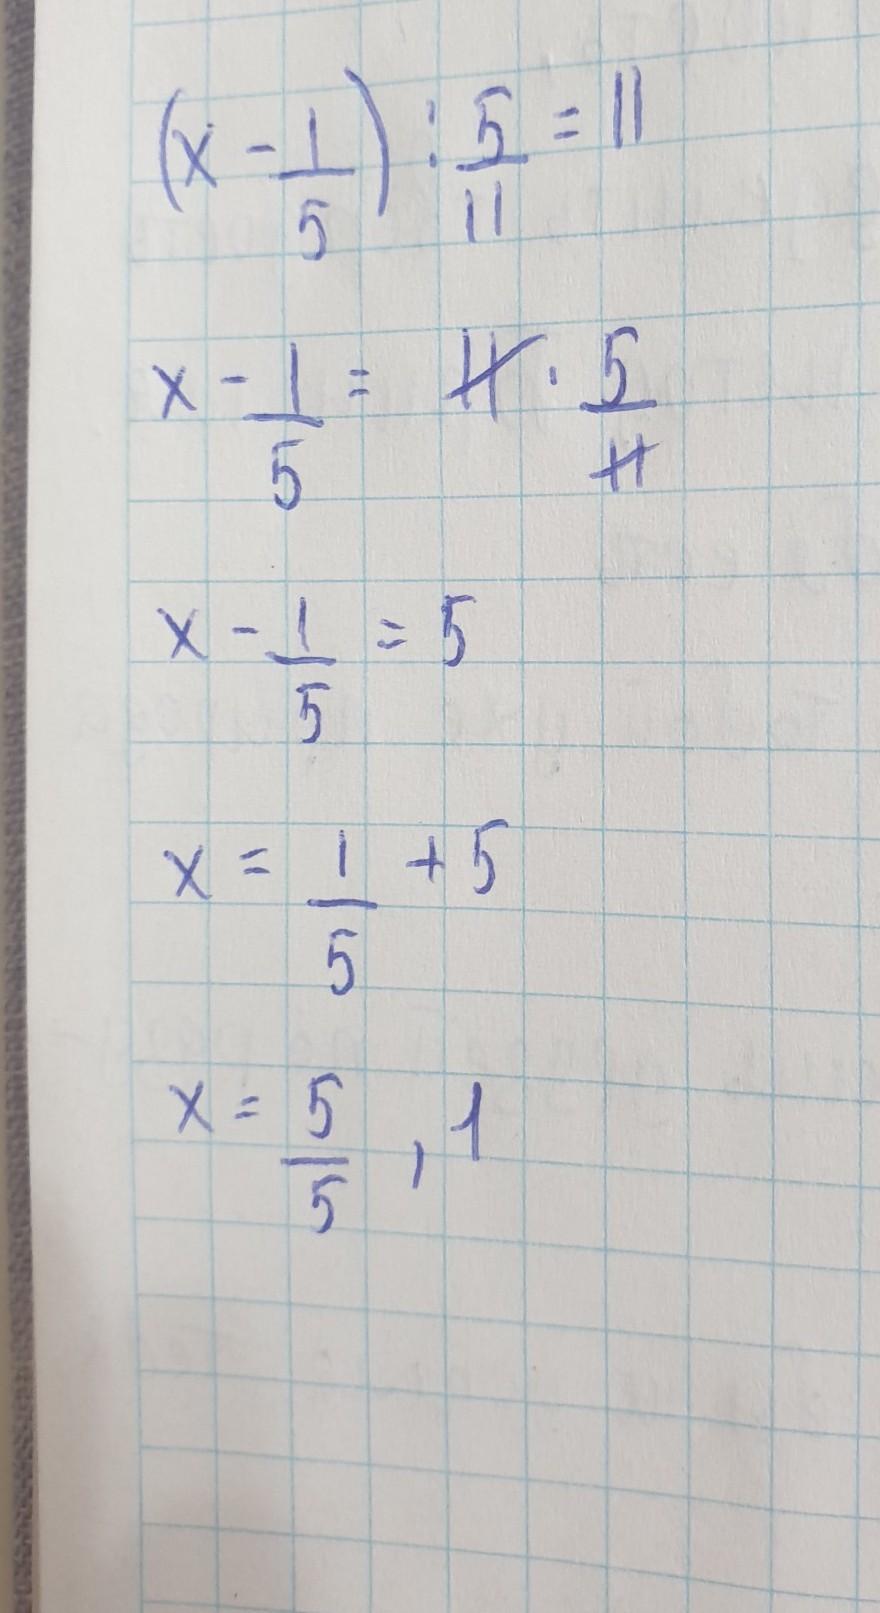 (x - 1/5) : 5/11 = 11
x - 1/5 = 11 · 5/11
x - 1/5 = 5
x = 1/5 + 5
x = 5/5 , 1